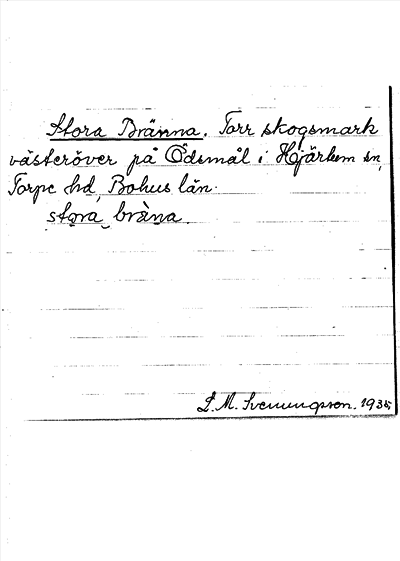 Stora Bränna. Torr skogsmark
västeröver på Ödsmål i Hjärtum sn,
Torpe hd, Bohus län.
stora bräna.
S. M. Svenungsson. 1935